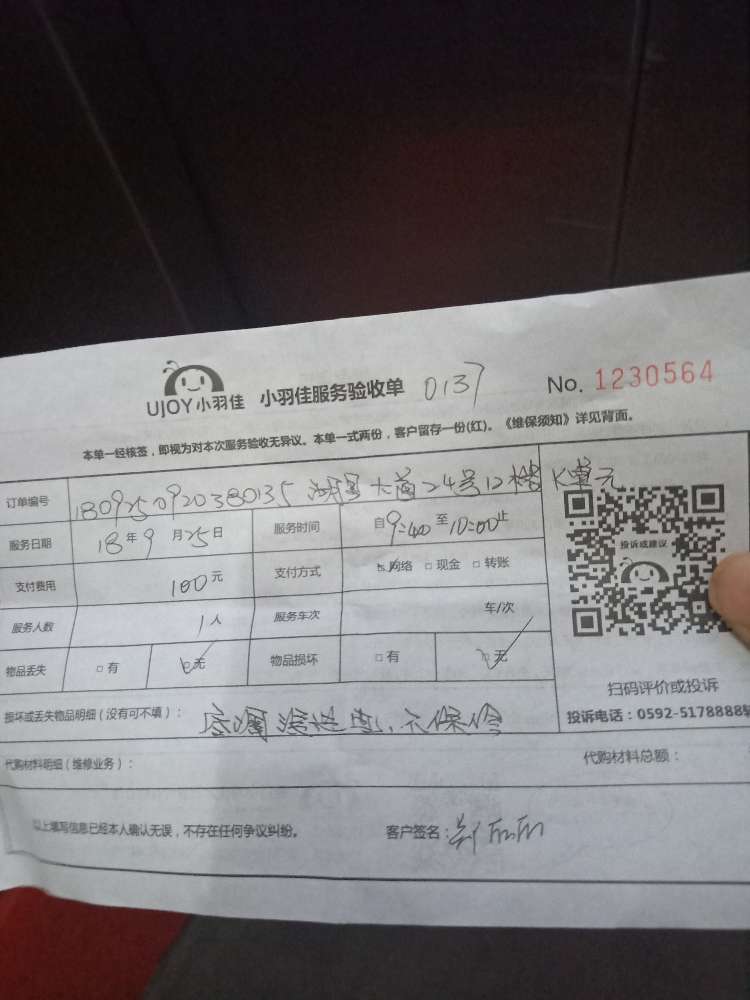 UJOY小羽佳 小羽佳服务验收单 0137 No. 1230564
本单一经核签，即视为对本次服务验收无异议。本单一式两份，客户留存一份(红)。《维保须知》详见背面。
订单编号 1809250920380135 大 24号12楼K单元
服务日期 18年9月25日 服务时间 自9:40至10:00止
支付费用 100元 支付方式 网络 □现金 □转账
服务人数 1人 服务车次 车/次
物品丢失 □有 无 物品损坏 □有 无
投诉或建议
扫码评价或投诉
损坏或丢失物品明细（没有可不填）： 保修
投诉电话：0592-5178888转
代购材料明细（维修业务）： 代购材料总额：
以上填写信息已经本人确认无误，不存在任何争议纠纷。 客户签名：